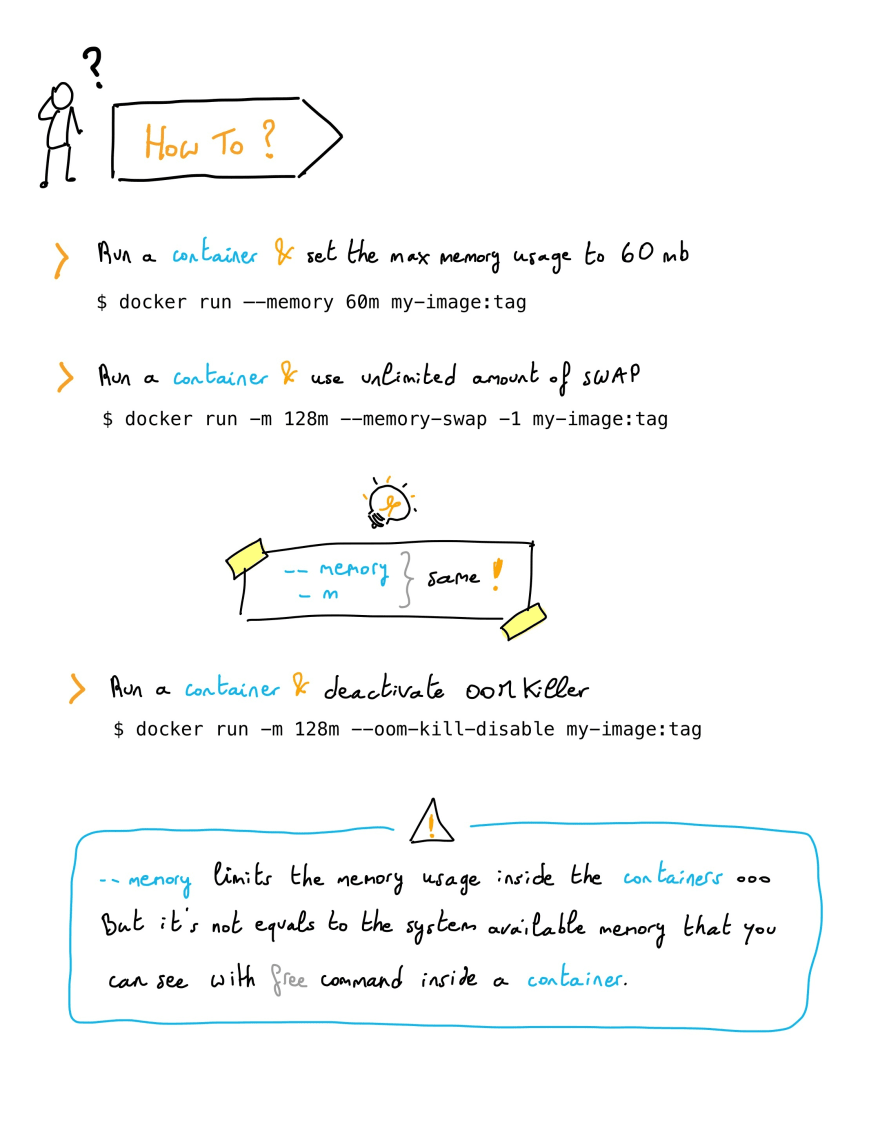 ?
How To ?
> Run a container & set the max memory usage to 60 mb
$ docker run --memory 60m my-image:tag
> Run a container & use unlimited amount of SWAP
$ docker run -m 128m --memory-swap -1 my-image:tag
-- memory } same !
- m
> Run a container & deactivate OOM Killer
$ docker run -m 128m --oom-kill-disable my-image:tag
!
-- memory limits the memory usage inside the containers ...
But it's not equals to the system available memory that you
can see with free command inside a container.